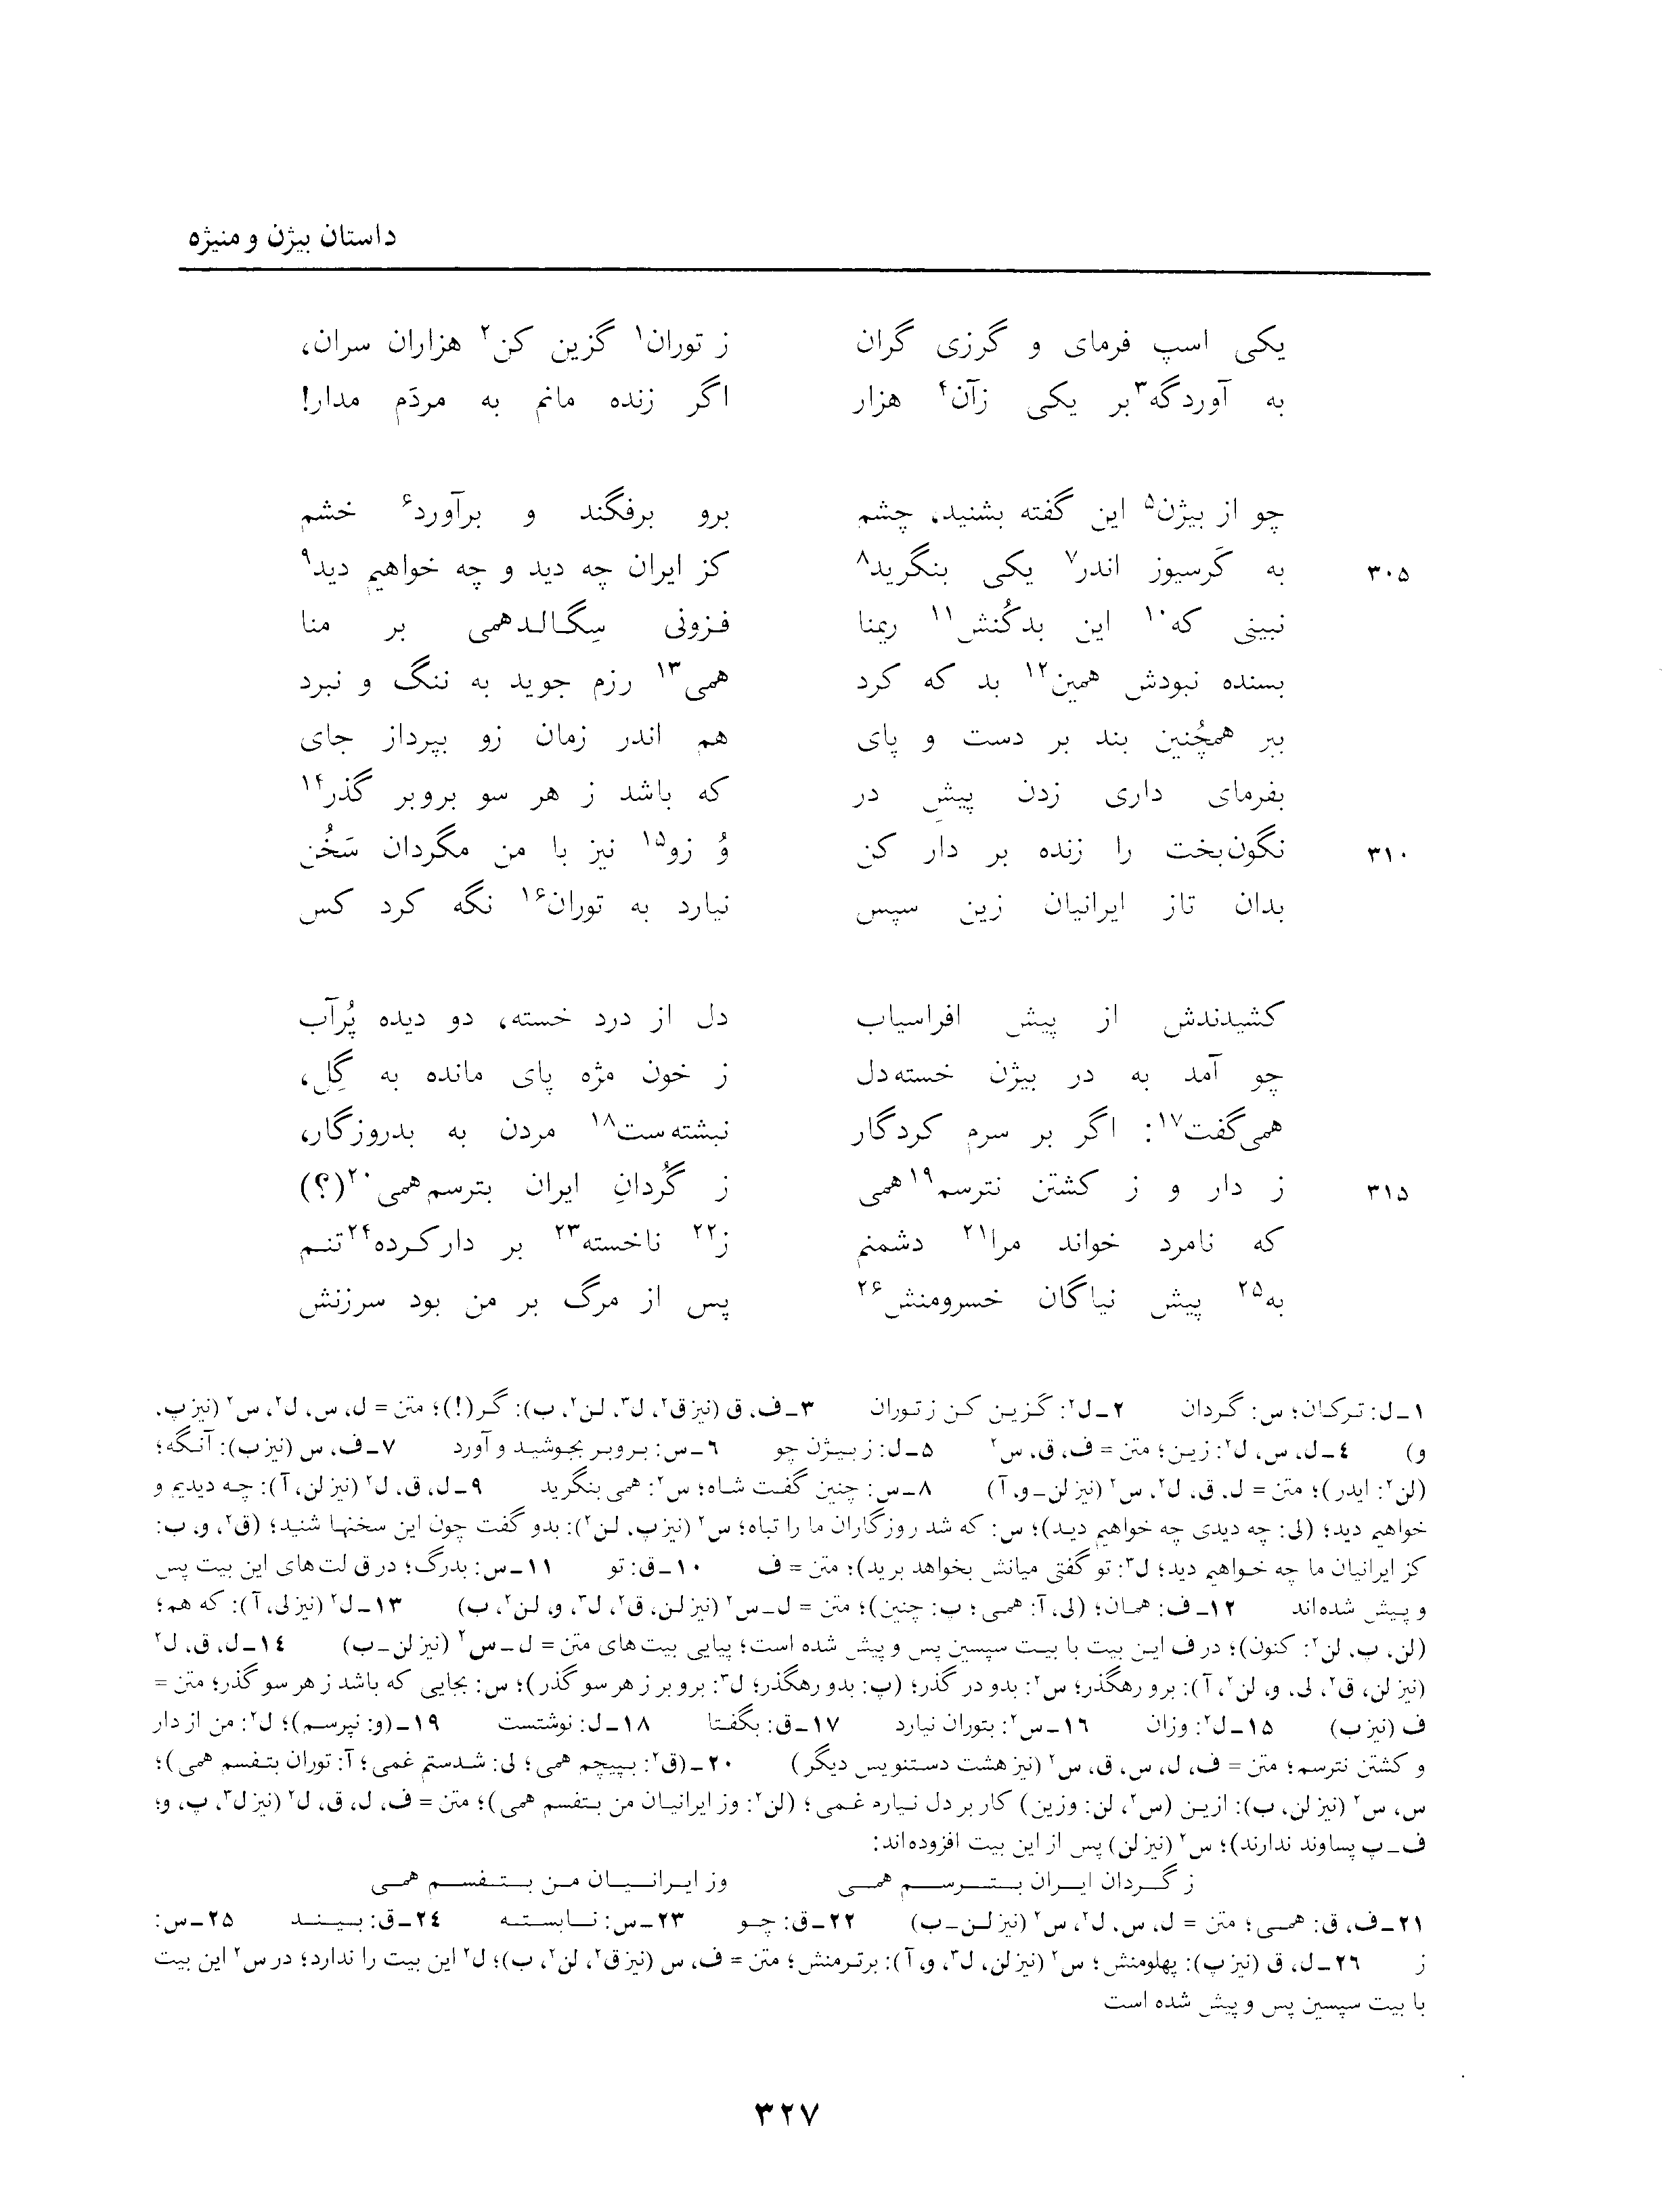 داستان بیژن و منیژه
یکی اسپ فرمای و گرزی گران ز توران۱ گزین کن۲ هزاران سران،
به آوردگه۳ بر یکی زآن۴ هزار اگر زنده مانم به مردَم مدار!
چو از بیژن۵ این گفته بشنید، چشم برو برفگند و برآورد۶ خشم
۳۰۵ به گَرسیوز اندر۷ یکی بنگرید۸ کز ایران چه دید و چه خواهیم دید۹
نبینی که۱۰ این بدکُنش۱۱ ریمنا فزونی سِگالدهمی بر منا
بسنده نبودش همین۱۲ بد که کرد همی۱۳ رزم جوید به ننگ و نبرد
ببر همچُنین بند بر دست و پای هم اندر زمان زو بپرداز جای
بفرمای داری زدن پیشِ در که باشد ز هر سو بروبر گذر۱۴
۳۱۰ نگون‌بخت را زنده بر دار کن وُ زو۱۵ نیز با من مگردان سَخُن
بدان تاز ایرانیان زین سپس نیارد به توران۱۶ نگه کرد کس
کشیدندش از پیش افراسیاب دل از درد خسته، دو دیده پُرآب
چو آمد به در بیژن خسته‌دل ز خون مژه پای مانده به گِل،
همی‌گفت۱۷: اگر بر سرم کردگار نبشته‌ست۱۸ مردن به بدروزگار،
۳۱۵ ز دار و ز کشتن نترسم۱۹ همی ز گُردانِ ایران بترسم همی۲۰ (؟)
که نامرد خواند مرا۲۱ دشمنم ز۲۲ ناخسته۲۳ بر دار کرده۲۴ تنم
به۲۵ پیش نیاگان خسرومنش۲۶ پس از مرگ بر من بود سرزنش
۱ـ ل: ترکان؛ س: گردان ۲ـ ل۲: گزین کن ز توران ۳ـ ف، ق (نیز ق۲، ل۳، لن۲، ب): گر(!)؛ متن = ل، س، ل۲، س۲ (نیز پ،
و) ۴ـ ل، س، ل۲: زین؛ متن = ف، ق، س۲ ۵ـ ل: ز بیژن چو ۶ـ س: بروبر بجوشید و آورد ۷ـ ف، س (نیز ب): آنگه؛
(لن۲: ایدر)؛ متن = ل، ق، ل۲، س۲ (نیز لن ـ و، آ) ۸ـ س: چنین گفت شاه؛ س۲: همی بنگرید ۹ـ ل، ق، ل۲ (نیز لن، آ): چه دیدیم و
خواهیم دید؛ (لی: چه دیدی چه خواهیم دید)؛ س: که شد روزگاران ما را تباه؛ س۲ (نیز پ، لن۲): بدو گفت چون این سخنها شنید؛ (ق۲، و، ب:
کز ایرانیان ما چه خواهیم دید؛ ل۳: تو گفتی میانش بخواهد برید)؛ متن = ف ۱۰ـ ق: تو ۱۱ـ س: بدرگ؛ در ق لت‌های این بیت پس
و پیش شده‌اند ۱۲ـ ف: همان؛ (لی، آ: همی؛ پ: چنین)؛ متن = ل ـ س۲ (نیز لن، ق۲، ل۳، و، لن۲، ب) ۱۳ـ ل۲ (نیز لی، آ): که هم؛
(لن، پ، لن۲: کنون)؛ در ف این بیت با بیت سپسین پس و پیش شده است؛ پیایی بیت‌های متن = ل ـ س۲ (نیز لن ـ ب) ۱۴ـ ل، ق، ل۲
(نیز لن، ق۲، لی، و، لن۲، آ): برو رهگذر؛ س۲: بدو در گذر؛ (پ: بدو رهگذر؛ ل۳: بروبر ز هر سو گذر)؛ س: بجایی که باشد ز هر سو گذر؛ متن =
ف (نیز ب) ۱۵ـ ل۲: وزان ۱۶ـ س۲: بتوران نیارد ۱۷ـ ق: بگفتا ۱۸ـ ل: نوشتست ۱۹ـ (و: نپرسم)؛ ل۲: من از دار
و کشتن نترسم؛ متن = ف، ل، س، ق، س۲ (نیز هشت دستنویس دیگر) ۲۰ـ (ق۲: بپیچم همی؛ لی: شدستم غمی؛ آ: توران بتفسم همی)؛
س، س۲ (نیز لن، ب): ازین (س۲، لن: وزین) کار بر دل نیاره غمی؛ (لن۲: وز ایرانیان من بتفسم همی)؛ متن = ف، ل، ق، ل۲ (نیز ل۳، پ، و؛
ف ـ پ پساوند ندارند)؛ س۲ (نیز لن) پس از این بیت افزوده‌اند:
ز گردان ایران بترسم همی وز ایرانیان من بتفسم همی
۲۱ـ ف، ق: همی؛ متن = ل، س، ل۲، س۲ (نیز لن ـ ب) ۲۲ـ ق: چو ۲۳ـ س: نابسته ۲۴ـ ق: بیند ۲۵ـ س:
ز ۲۶ـ ل، ق (نیز پ): پهلومنش؛ س۲ (نیز لن، ل۳، و، آ): برترمنش؛ متن = ف، س (نیز ق۲، لن۲، ب)؛ ل۲ این بیت را ندارد؛ در س۲ این بیت
با بیت سپسین پس و پیش شده است
۳۲۷